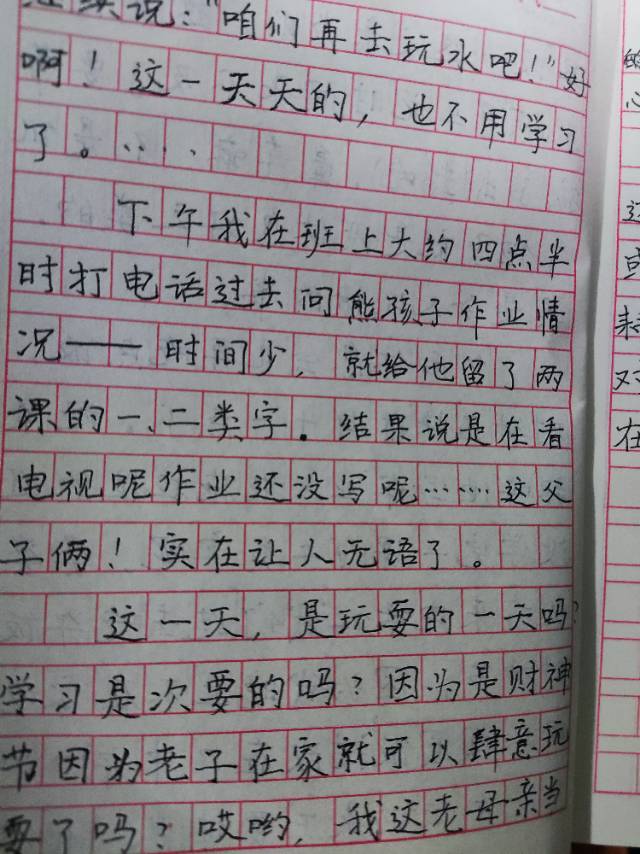 继续说："咱们再去玩水吧！"好
啊！这一天天的，也不用学习
了。.....
下午我在班上大约四点半
时打电话过去问熊孩子作业情
况——时间少，就给他留了两
课的一、二类字．结果说是在看
电视呢作业还没写呢……这父
子俩！实在让人无语了。
这一天，是玩耍的一天吗？
学习是次要的吗？因为是财神
节因为老子在家就可以肆意玩
耍了吗？哎哟，我这老母亲当